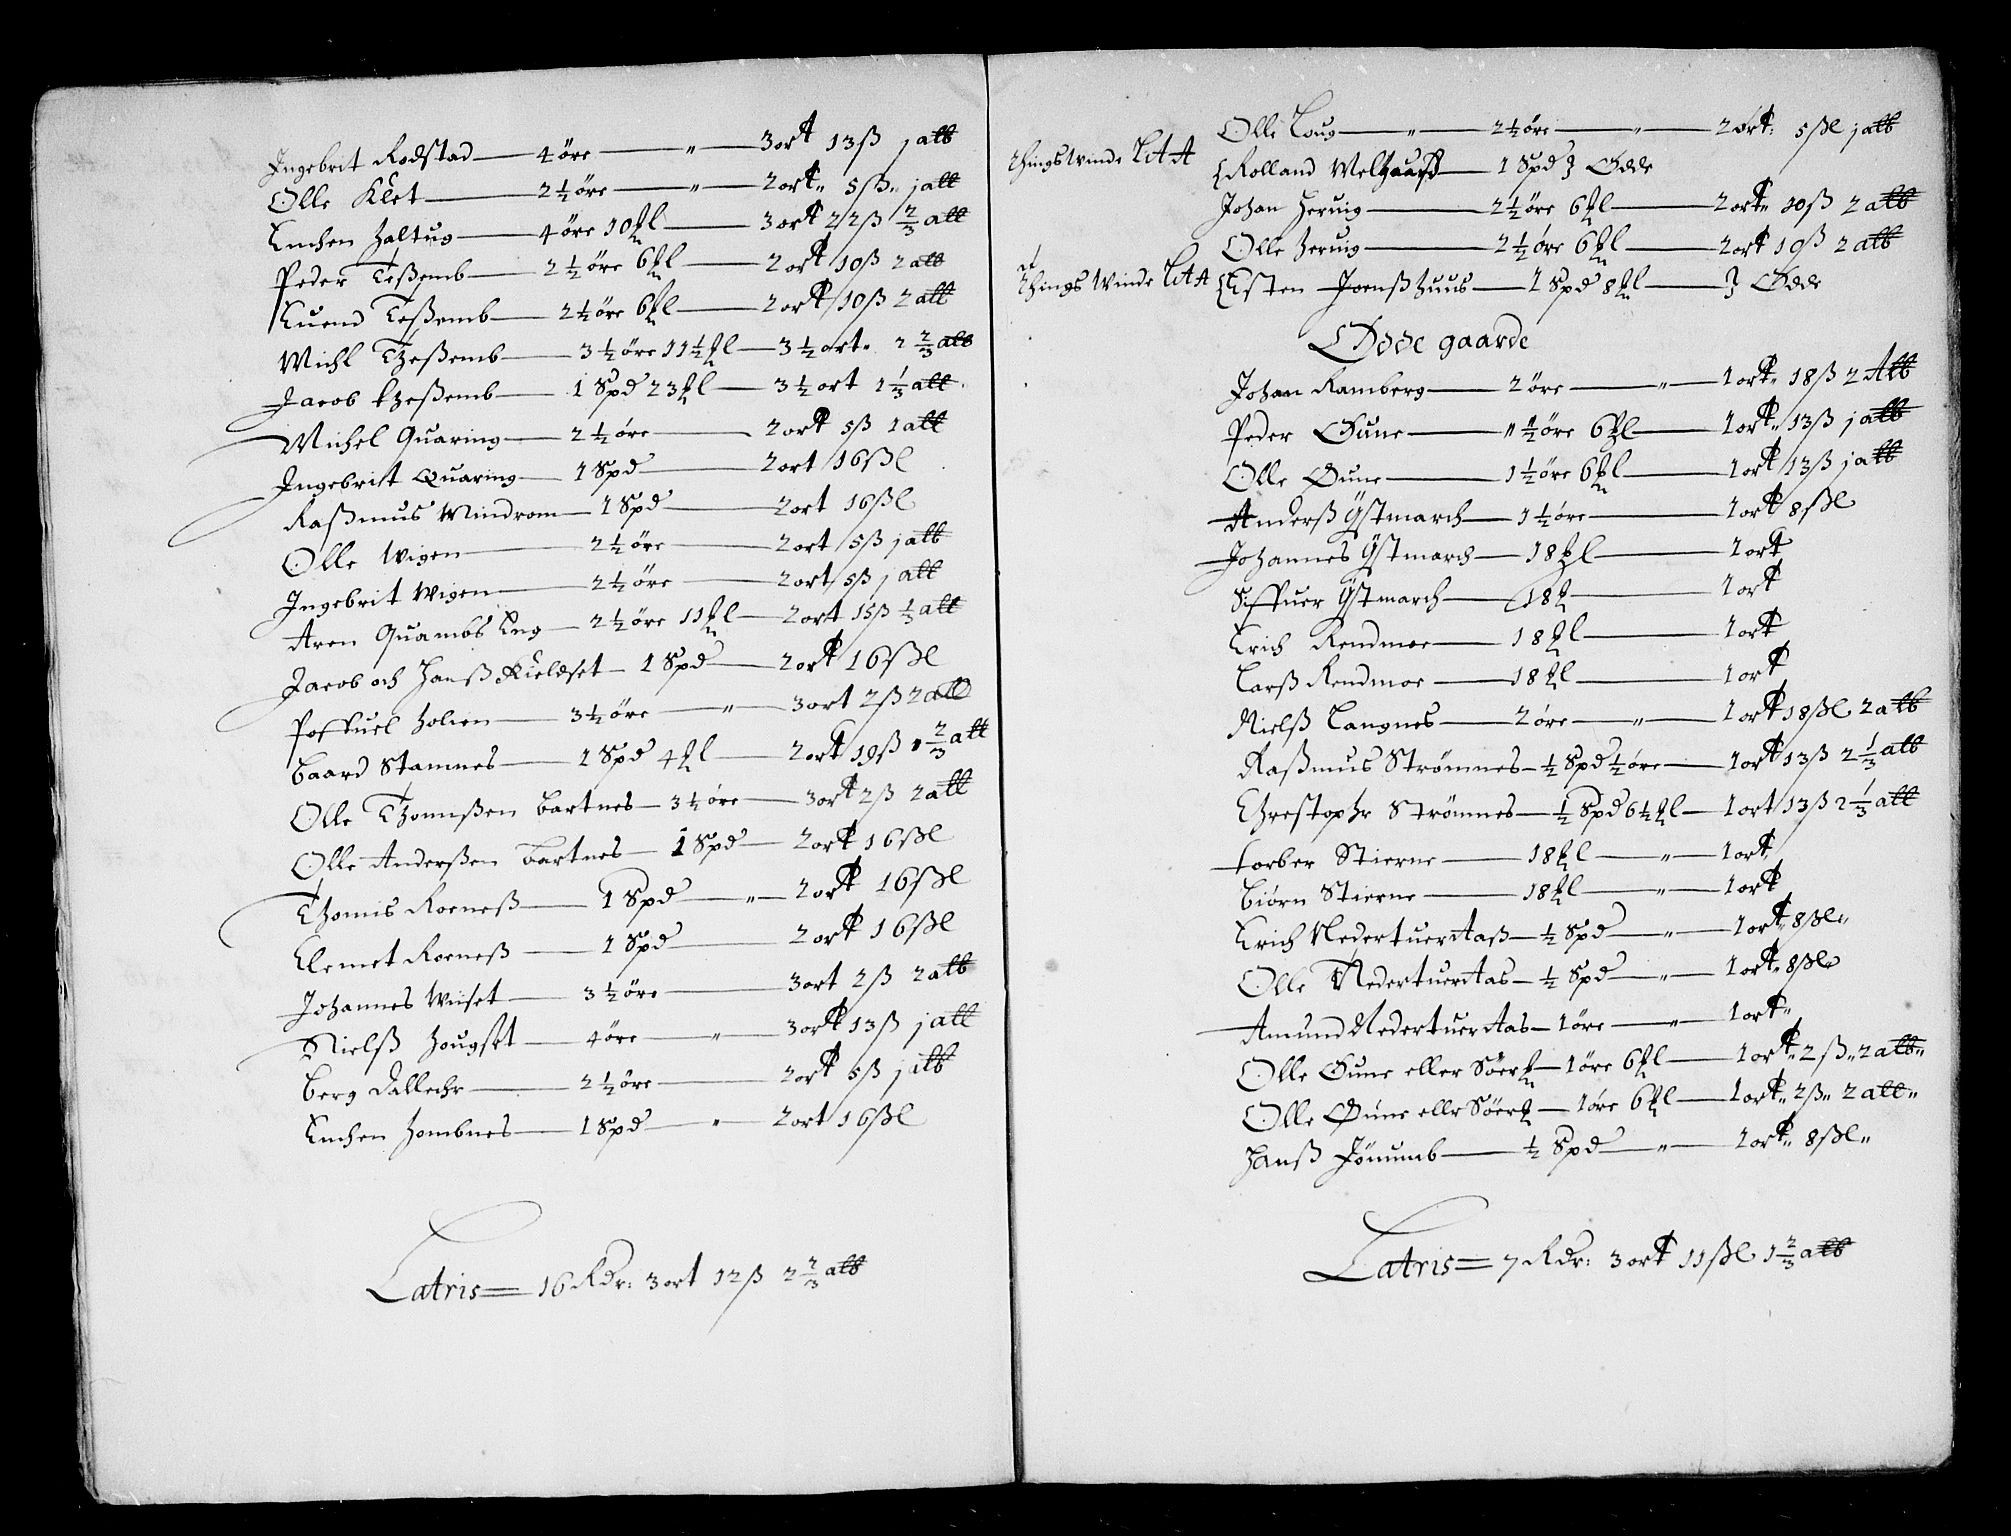 Ingebrit Rodstad — 4 öre — " — 3 ort 13 ß j alb
Olle Klet — 2½ öre — " — 2 ort" 5 ß" j alb
Luchen Haltug — 4 öre 10 ℔l — 3 ort 22 ß ⅔ alb
Peder Teßemb — 2½ öre 6 ℔l — 2 ort 10 ß 2 alb
Suend Teßemb — 2½ öre 6 ℔l — 2 ort 10 ß 2 alb
Michl Theßemb — 3½ öre 11½ ℔l — 3½ ort" 2⅔ alb
Jacob theßemb — 1 Spd 23 ℔l — 3½ ort 1⅓ alb
Michel Quaring — 2½ öre — 2 ort 5 ß 1 alb
Ingebrit Quaring — 1 Spd — 2 ort 16 ßl
Raßmus Windrom — 1 Spd — 2 ort 16 ßl
Olle Wigen — 2½ öre — 2 ort 5 ß j alb
Ingebrit Wigen — 2½ öre — 2 ort 5 ß j alb
Aren Quambs Eng — 2½ öre 11 ℔l — 2 ort 15 ß ⅓ alb
Jacob och Hanß Kieldset — 1 Spd — 2 ort 16 ßl
Poffuel Holien — 3½ öre — " — 3 ort 2 ß 2 alb
Baard Stamnes — 1 Spd 4 ℔l — 2 ort 19 ß ⅔ alb
Olle Thomßen Bartnes — 3½ öre — 3 ort 2 ß 2 alb
Olle Anderßen Bartnes — 1 Spd — 2 ort 16 ßl
Thomis Roeneß — 1 Spd — " — 2 ort 16 ßl
Clemet Roeneß — 1 Spd — 2 ort 16 ßl
Johannes Wiiset — 3½ öre — 3 ort 2 ß 2 alb
Nielß Hougset — 4 öre — " — 3 ort 13 ß j alb
Berg Dallechr — 2½ öre — 2 ort 5 ß j alb
Luchen Hombnes — 1 Spd — " — 2 ort 16 ßl
Latris = 16 Rdr: 3 ort 12 ß 2⅔ alb
Olle Loug — " — 2½ öre — " — 2 ort: 5 ßl j alb
Thingswinde Lit A {Rolland Melhuusß — 1 Spd} Øde
Johan Heruig — 2½ öre 6 ℔l — 2 ort" 10 ß 2 alb
Olle Heruig — 2½ öre 6 ℔l — 2 ort 10 ß 2 alb
Things Winde Lit A {Esten Joenßhuus — 1 Spd 8 ℔l — } Øde
Øde gaarde
Johan Ramberg — 2 öre — " — 1 ort" 18 ß 2 Alb
Peder Øune — 1½ öre 6 ℔l — 1 ort" 13 ß j alb
Olle Øune — 1½ öre 6 ℔l — 1 ort 13 ß j alb
Anderß Ÿstmarch — 1½ öre — 1 ort 8 ßl
Johannes Ÿstmarch — 18 ℔l — 1 ort
Siffuer Ÿstmarch — 18 ℔ — 1 ort
Erich Rendmoe — 18 ℔l — 1 ort
Larß Rendmoe — 18 ℔l — 1 ort
Nielß Langnes — 2 öre — " — 1 ort 18 ßl 2 alb
Raßmus Strömnes — ½ Spd ½ öre — 1 ort 13 ß 2⅓ alb
Chrestophr Strömnes — ½ Spd 6½ ℔l — 1 ort 13 ß 2⅓ alb
torber Stierne — 18 ℔l — " — 1 ort
Biörn Stierne — 18 ℔l — " — 1 ort
Erich NedertuerAaß — ½ Spd — " — 1 ort" 8 ßl"
Olle NedertuerAas — ½ Spd — " — 1 ort" 8 ßl"
Amund NedertuerAas — 1 öre — " — 1 ort"
Olle Øune eller Söer℔ — 1 öre 6 ℔l — 1 ort" 2 ß" 2 alb"
Olle Øune ellr Söer℔ — 1 öre 6 ℔l — 1 ort" 2 ß" 2 alb"
Hanß Jönumb — ½ Spd — " — 1 ort" 8 ßl"
Latris = 7 Rdr: 3 ort 11 ßl 1⅔ alb